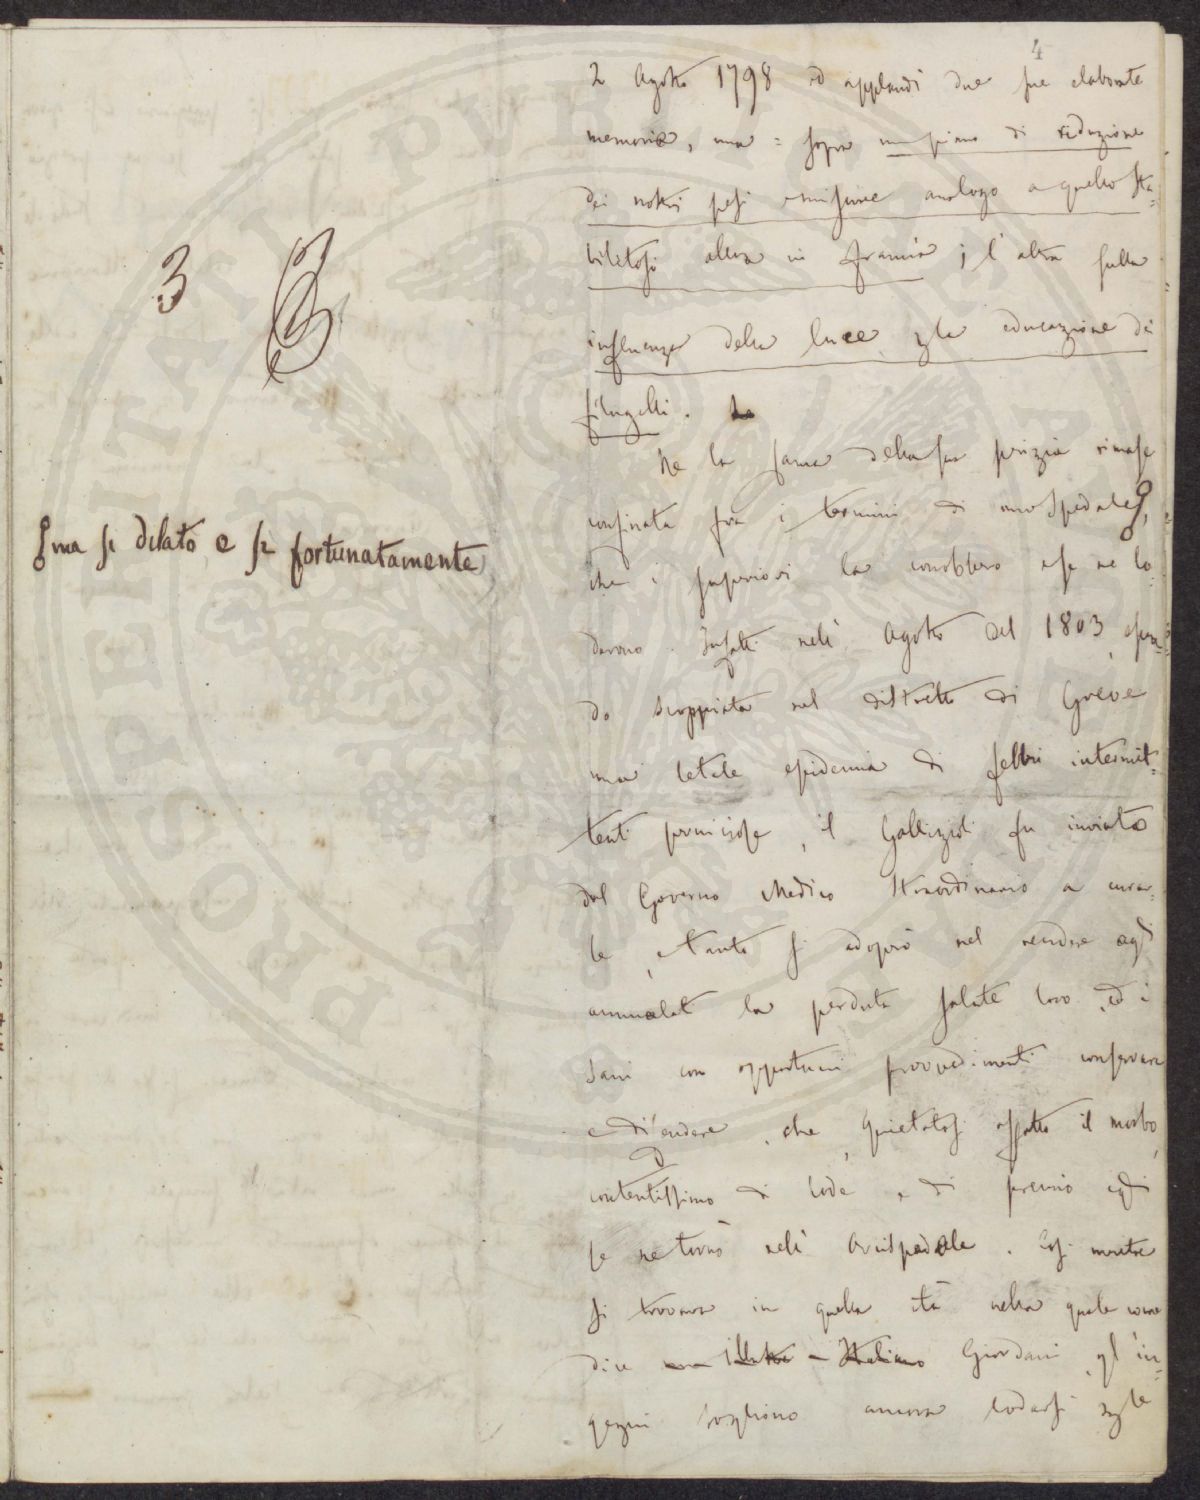 4
2 Agosto 1798 ed applaudì due sue elaborate
memorie, una = sopra un piano di riduzione
dei nostri pesi e misure analogo a quello sta-
bilitosi allora in Francia; l'altra sulla
influenza della luce p la educazione dei
filugelli.
Ne la fama della sua perizia rimase
confinata fra i termini di uno Spedale,
che i superiori la conobbero e se ne lo-
darono. Infatti nell' Agosto del 1803, essen-
do scoppiata nel distretto di Greve
una letale epidemia di febbri intermit-
tenti perniciose, il Gallizioli fu inviato
dal Governo Medico Straordinario a curar-
le, e tanto si adoprò nel rendere agl'
ammalati la perduta salute loro, ed i
sani con opportuni provvedimenti conservare
e difendere, che, quietatosi affatto il morbo,
contentissimo di lode e di premio egli
se ne tornò nell' Arcispedale. Così mentre
si trovava in quella età nella quale come
dice un illustre Italiano Giordani, gl'in-
gegni sogliono ancora lodarsi p le
3
ma si dilatò e sì fortunatamente
PROSPERITATI PVBLICAE AVGENDAE